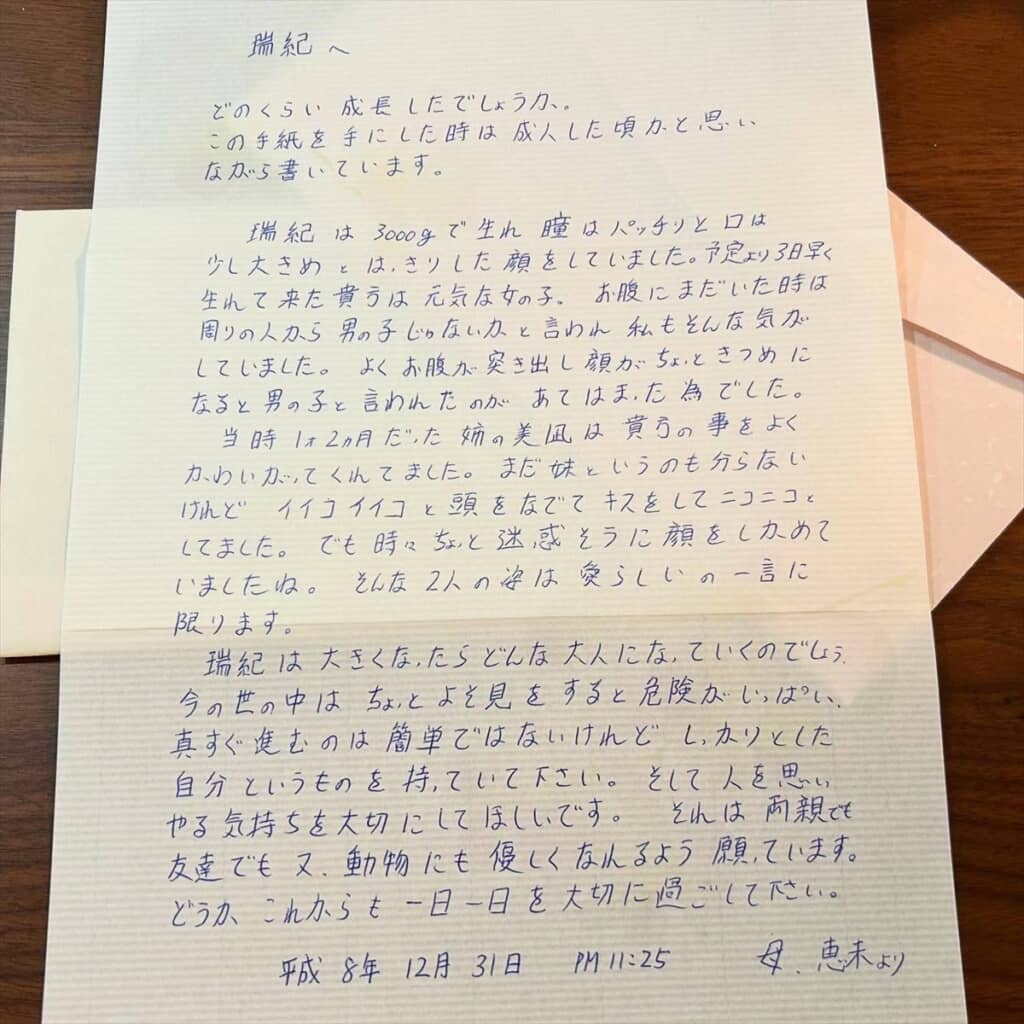 瑞紀へ
どのくらい成長したでしょうか。
この手紙を手にした時は成人した頃かと思い
ながら書いています。
瑞紀は3000gで生れ瞳はパッチリと口は
少し大きめとはっきりした顔をしていました。予定より3日早く
生れて来た貴方は元気な女の子。お腹にまだいた時は
周りの人から男の子じゃないかと言われ私もそんな気が
していました。よくお腹が突き出し顔がちょっときつめに
なると男の子と言われたのがあてはまった為でした。
当時1才2ヵ月だった姉の美凪は貴方の事をよく
かわいがってくれてました。まだ妹というのも分らない
けれどイイコイイコと頭をなでてキスをしてニコニコと
してました。でも時々ちょっと迷惑そうに顔をしかめて
いましたね。そんな2人の姿は愛らしいの一言に
限ります。
瑞紀は大きくなったらどんな大人になっていくのでしょう。
今の世の中はちょっとよそ見をすると危険がいっぱい、
真すぐ進むのは簡単ではないけれどしっかりとした
自分というものを持っていて下さい。そして人を思い
やる気持ちを大切にしてほしいです。それは両親でも
友達でも又、動物にも優しくなれるよう願っています。
どうか、これからも一日一日を大切に過ごして下さい。
平成8年12月31日 PM11:25 母、恵未より